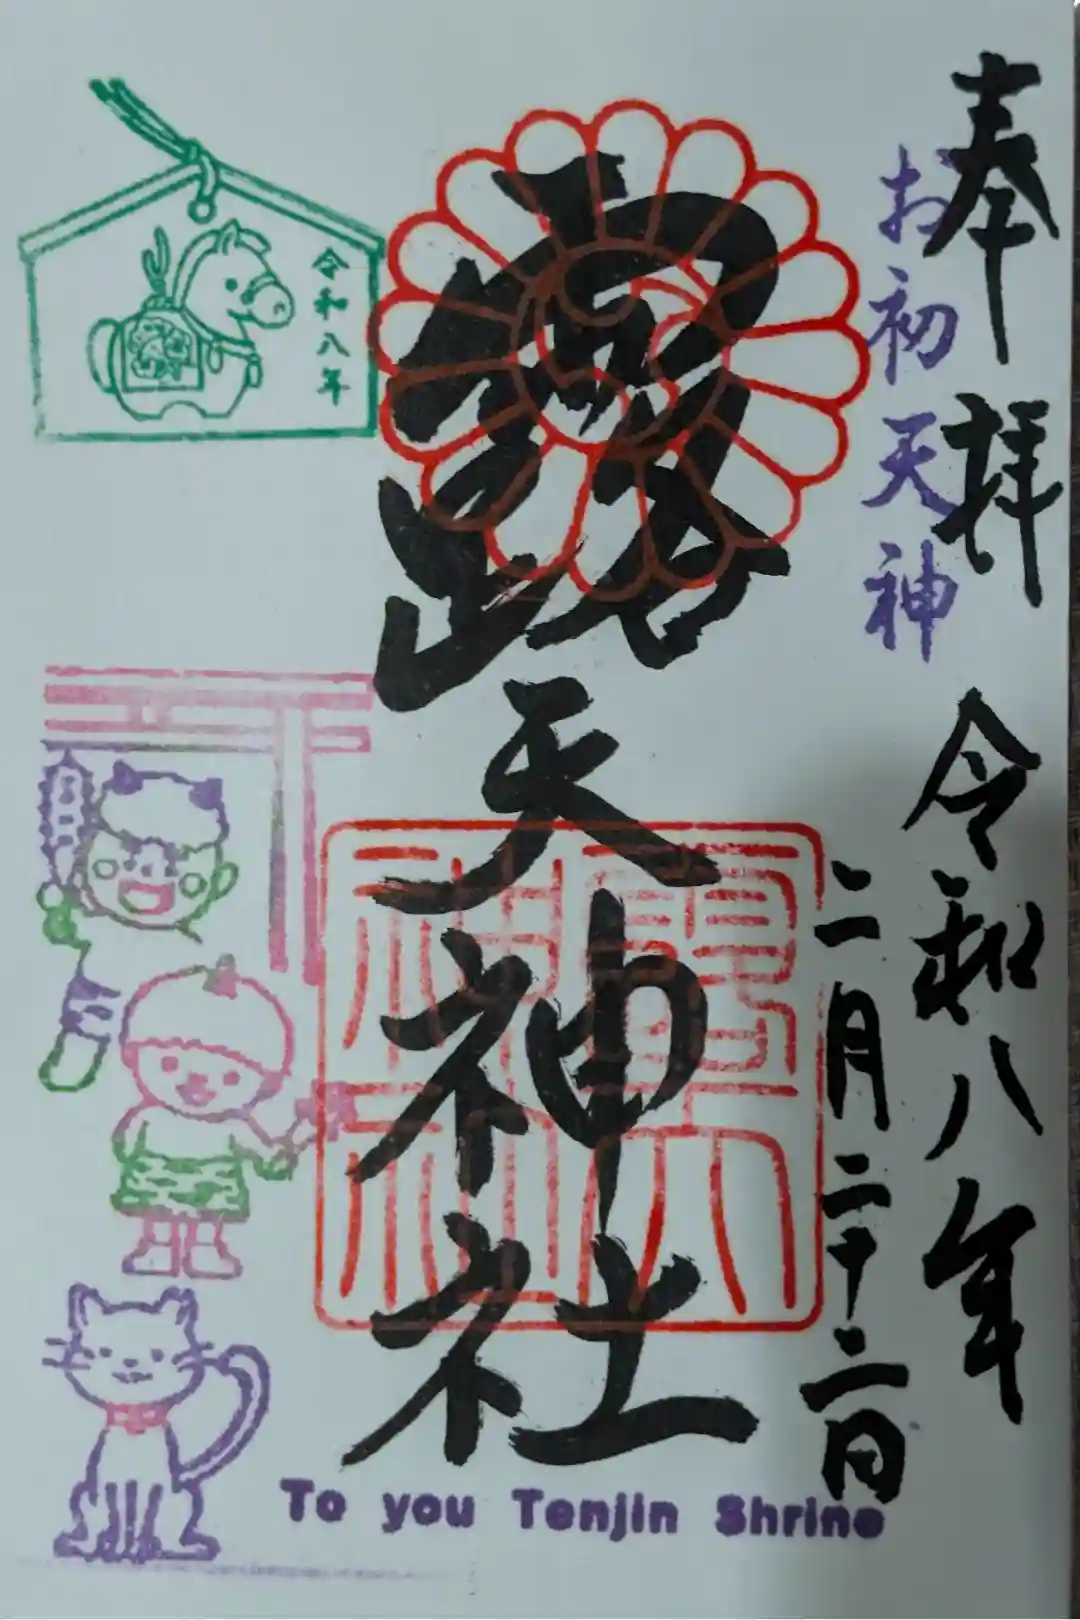 奉拝
お初天神
令和八年
二月二十二日
露天神社
令和八年
To you Tenjin Shrine